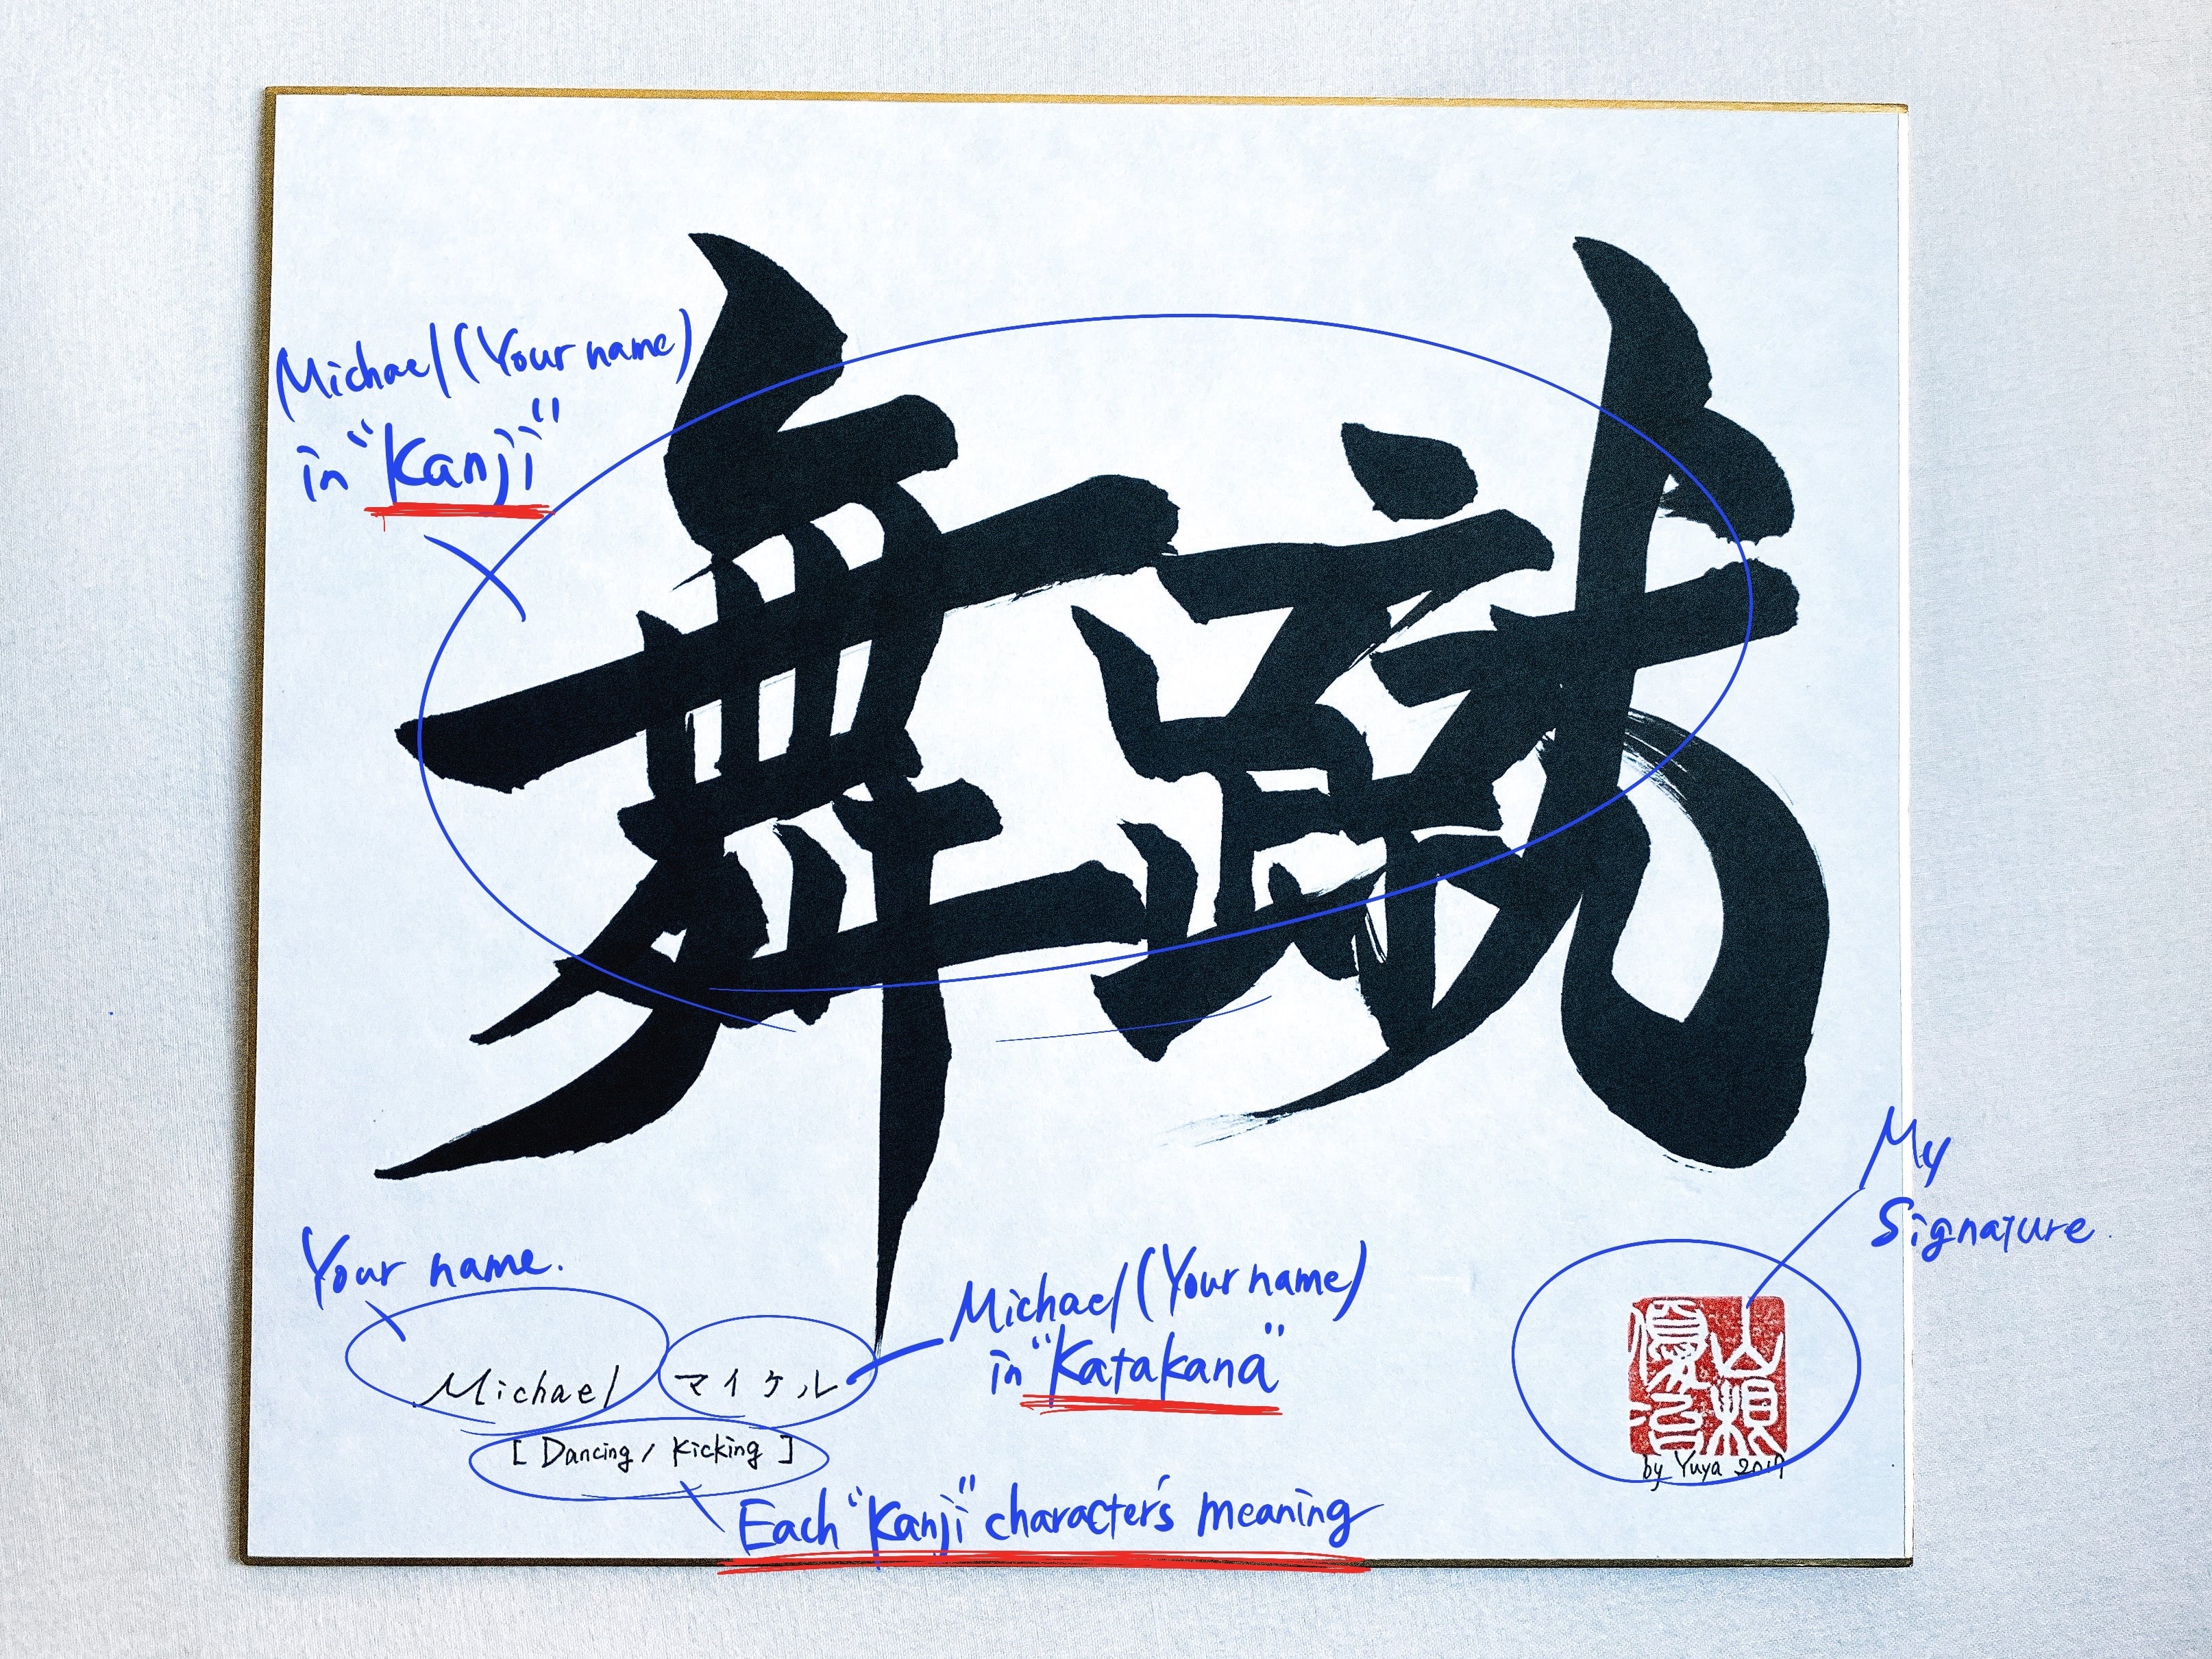 Michael (Your name)
in "Kanji"
舞蹴
My
Signature
Your name.
Michael (Your name)
in "Katakana"
Michael マイケル
[ Dancing / Kicking ]
by Yuya 2019
Each "Kanji" character's meaning